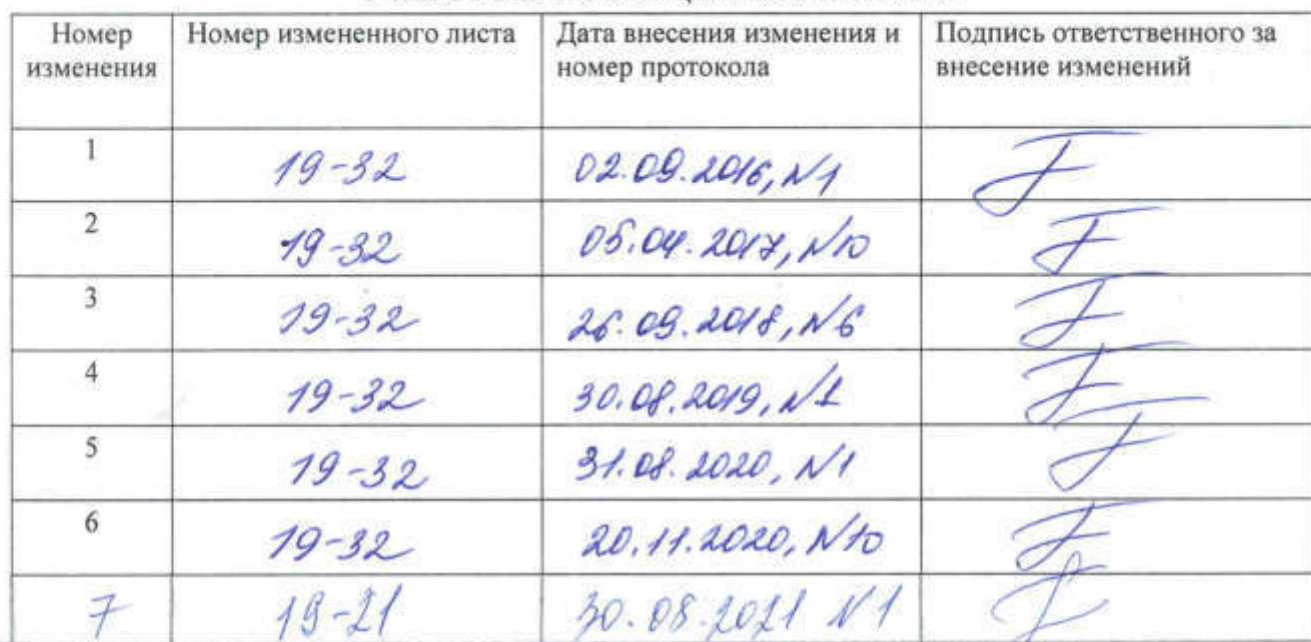 Номер изменения | Номер измененного листа | Дата внесения изменения и номер протокола | Подпись ответственного за внесение изменений
1 | 19-32 | 02.09.2016, №1
2 | 19-32 | 05.04.2017, №10
3 | 19-32 | 26.09.2018, №6
4 | 19-32 | 30.08.2019, №1
5 | 19-32 | 31.08.2020, №1
6 | 19-32 | 20.11.2020, №10
7 | 19-21 | 30.08.2021 №1